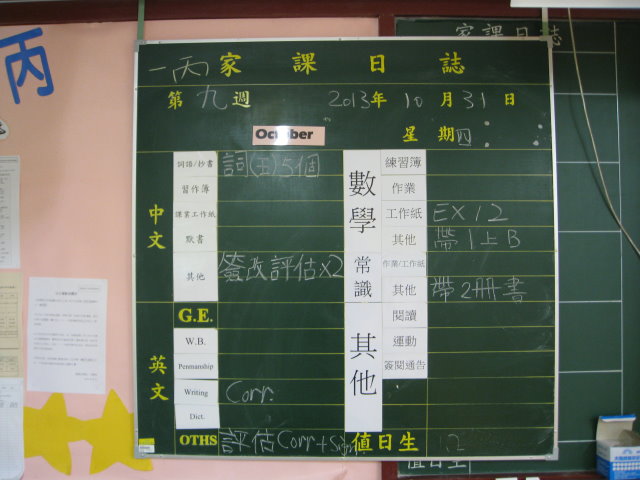 丙
家課日誌
一丙 家課日誌
第九週 2013年10月31日
October 星期四
中文
詞語/抄書 詞(五)5個
習作簿
課業工作紙
默書
其他 簽改評估x2
英文
G.E.
W.B.
Penmanship
Writing Corr.
Dict.
OTHS 評估Corr+Sign
數學
練習簿
作業
工作紙 EX12
其他 帶1上B
常識
作業/工作紙
其他 帶2冊書
其他
閱讀
運動
簽閱通告
值日生 12
值日生